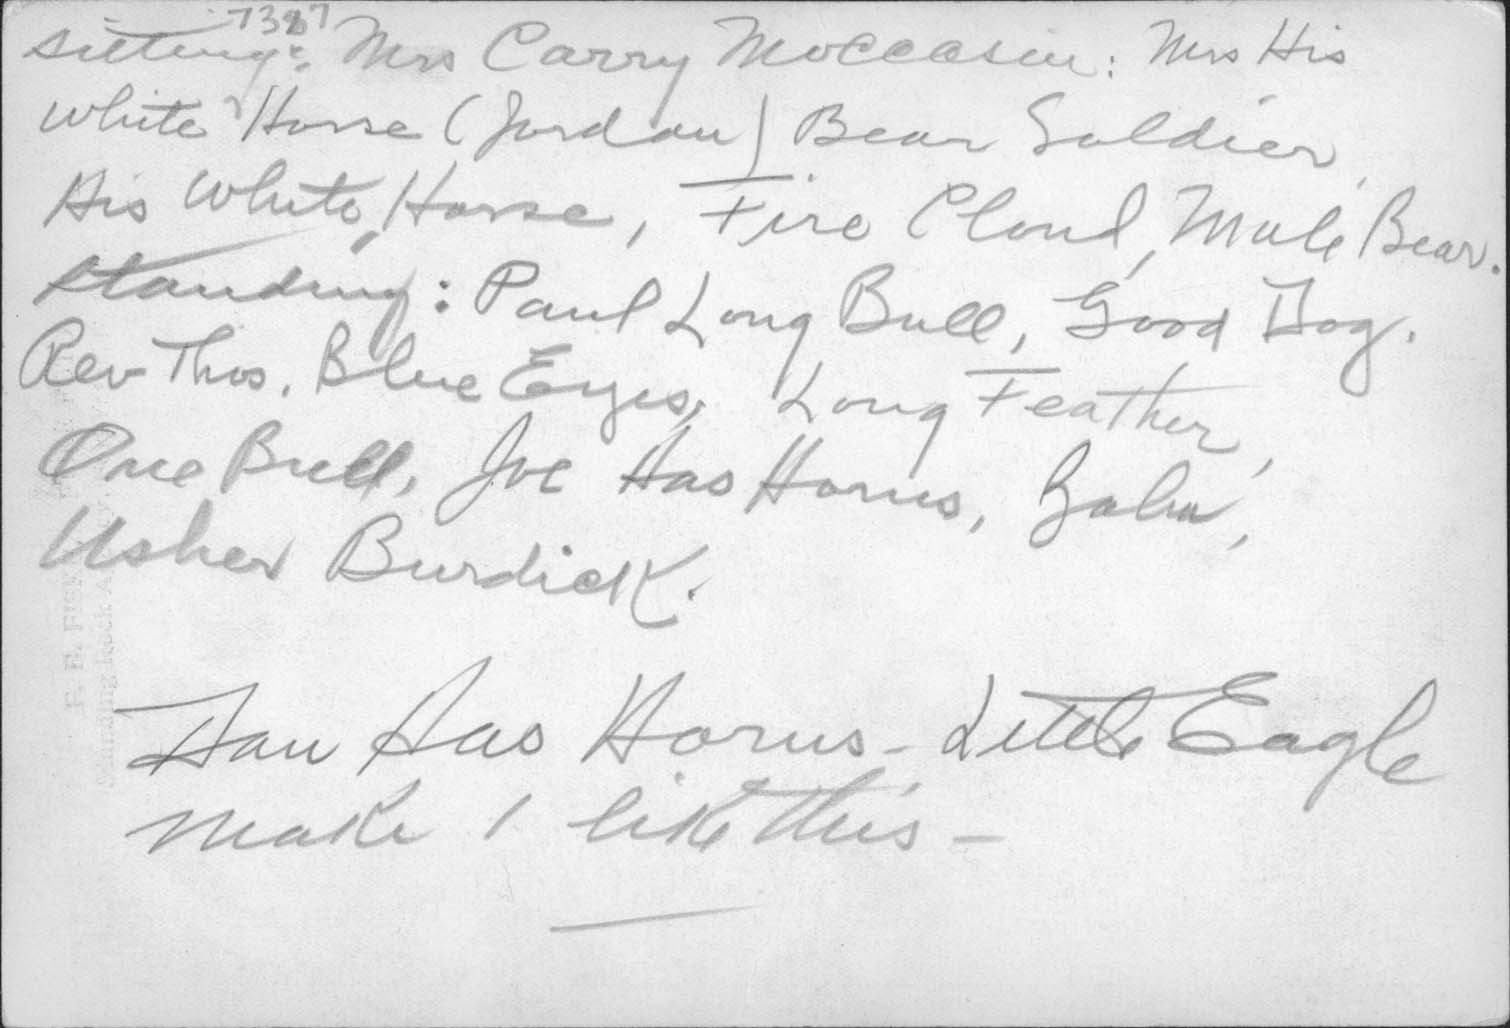 7387
Sitting: Mrs Carry Moccasin: Mrs His
White Horse (Jordan) Bear Soldier,
His White Horse, Fire Cloud, Male Bear.
Standing: Paul Long Bull, Good Dog.
Rev Thos. Blue Eyes, Long Feather,
One Bull, Joe Has Horns, Zahn,
Usher Burdick.
Dan Has Horns - Little Eagle
make 1 like this -